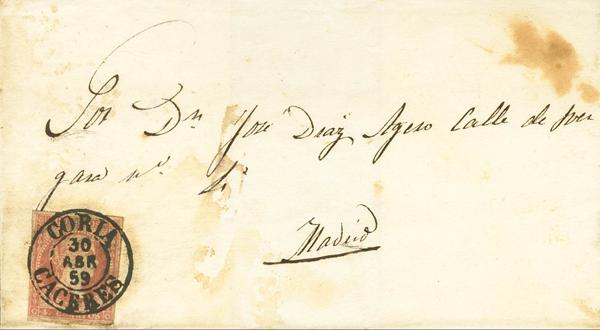 Sor Dn Jose Diaz Agero Calle de Ver
gara nº 4º
Madrid
CORIA
30
ABR
59
CACERES